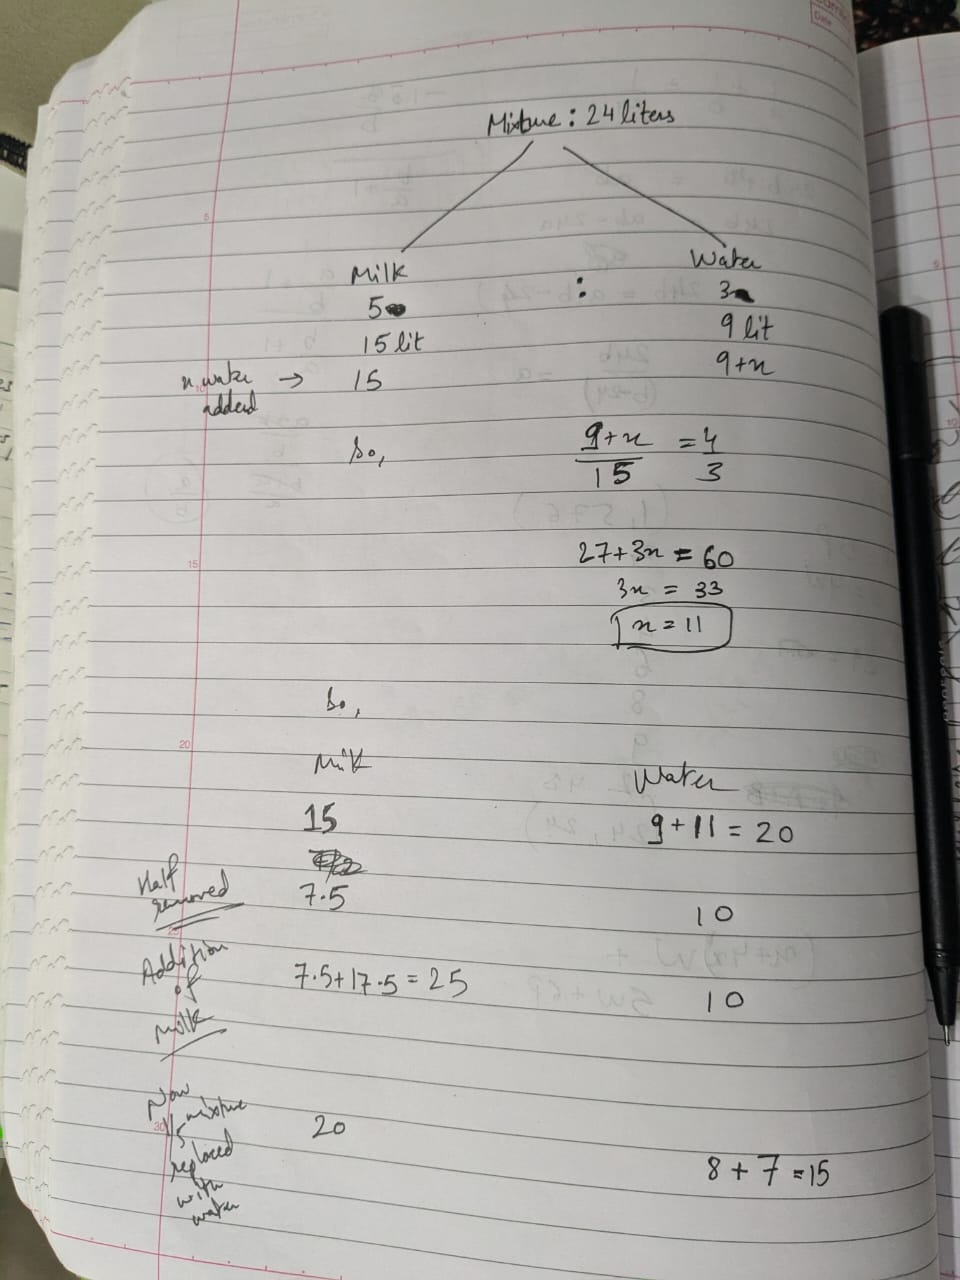 Mixture : 24 liters
Milk : Water
5 3
15 lit 9 lit
x water added → 15 9+x
So, (9+x)/15 = 4/3
27+3x = 60
3x = 33
x = 11
So,
Milk Water
15 9+11 = 20
Half removed 7.5 10
Addition of Milk 7.5+17.5 = 25 10
Now 1/5 mixture replaced with water 20 8 + 7 = 15